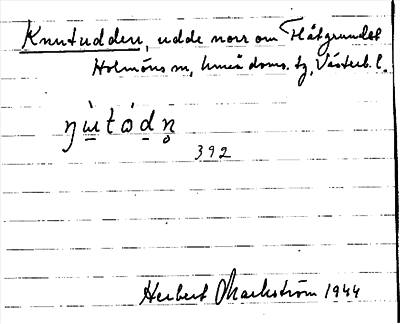 Knutudden, udde norr om Flåtgrundet
Holmöns sn, Umeå doms. tg, Västerb. l.
ŋɯ̀tódn̥
392
Herbert Markström 1944